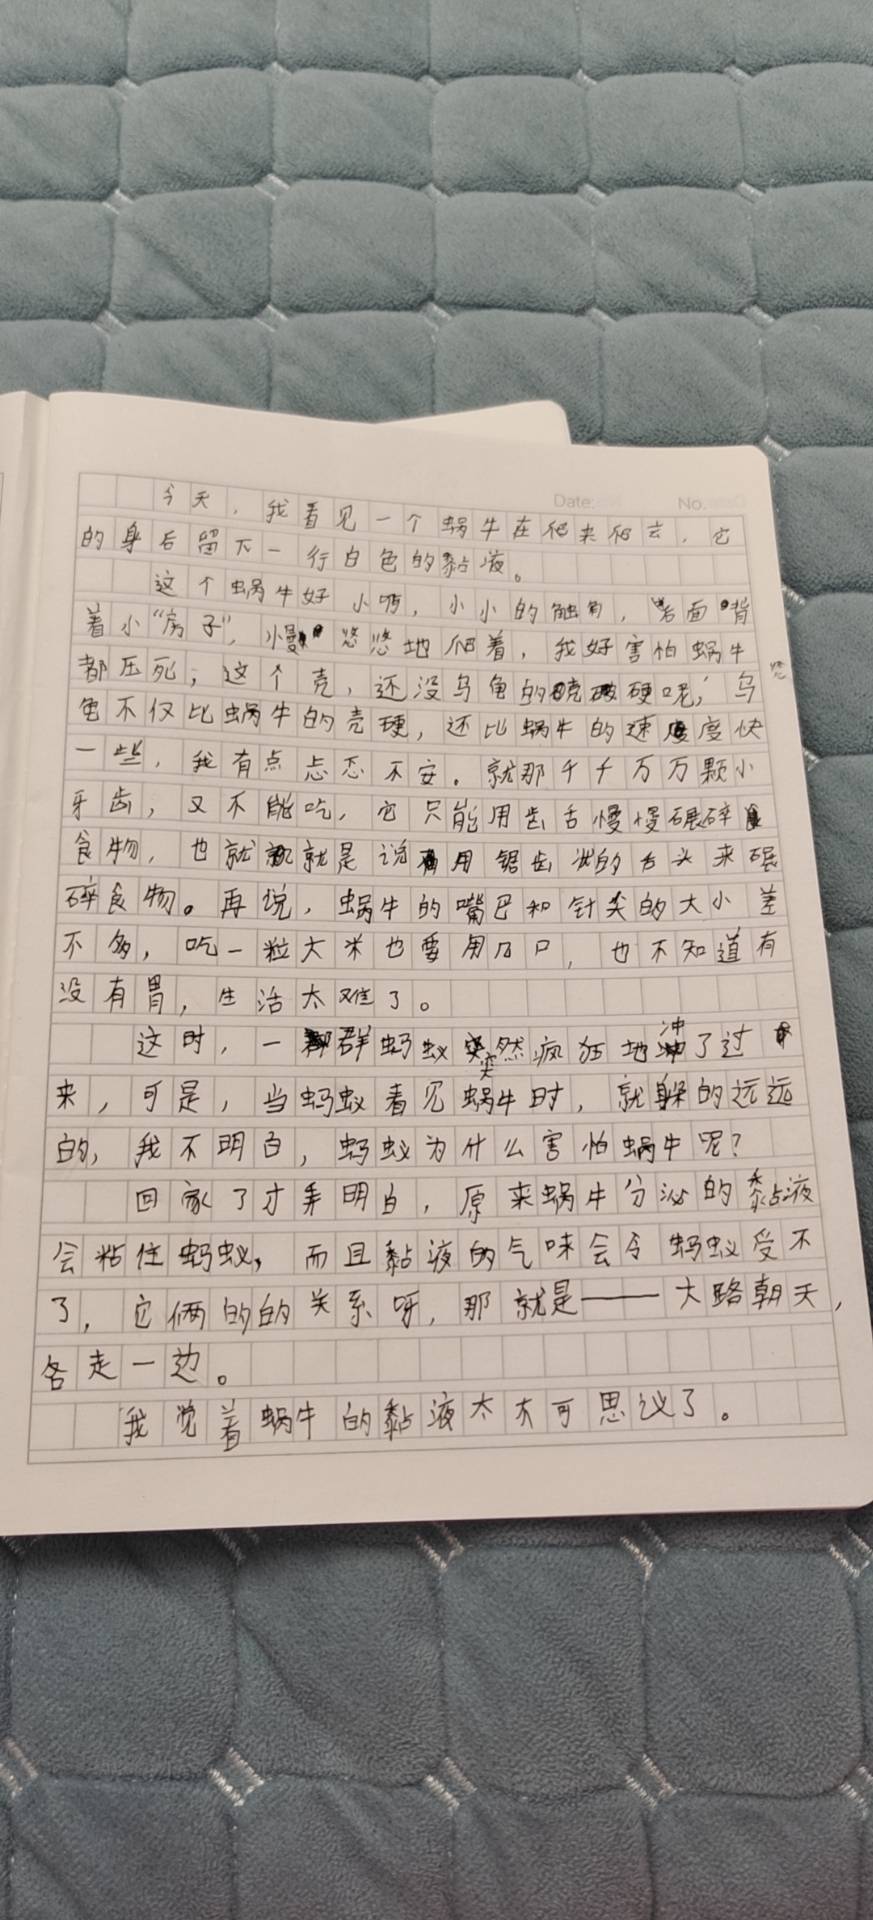 Date: No.
今天，我看见一个蜗牛在爬来爬去，它
的身后留下一行白色的黏液。
这个蜗牛好小呀，小小的触角，后面背
着小“房子”，慢悠悠地爬着，我好害怕蜗牛
都压死；这个壳，还没乌龟的壳硬呢，乌
龟不仅比蜗牛的壳硬，还比蜗牛的速度快
一些，我有点忐忑不安。就那千千万万颗小
牙齿，又不能吃，它只能用齿舌慢慢碾碎
食物，也就就是说用锯齿状的舌头来碾
碎食物。再说，蜗牛的嘴巴和针尖的大小差
不多，吃一粒大米也要用几口，也不知道有
没有胃，生活太难了。
这时，一群蚂蚁突然疯狂地冲了过
来，可是，当蚂蚁看见蜗牛时，就躲的远远
的，我不明白，蚂蚁为什么害怕蜗牛呢？
回家了才弄明白，原来蜗牛分泌的黏液
会粘住蚂蚁，而且黏液的气味会令蚂蚁受不
了，它俩的的关系呀，那就是——大路朝天，
各走一边。
我觉着蜗牛的黏液太不可思议了。